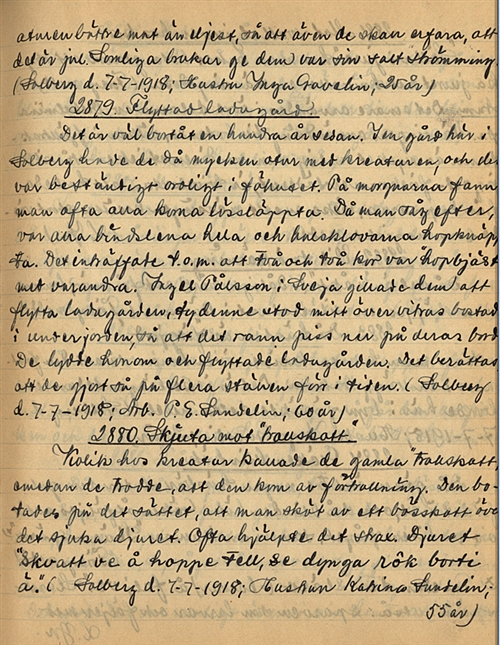 aturen bättre mat än eljest, så att även de skau erfara, att
det är jul. Somliga brukar ge dem var sin salt strömming.
(Solberg d. 7-7-1918; Hustru Inga Gavelin; 25 år)
2879. Flyttad ladugård.
Det är väl bortåt en hundra år sesan. I en gård här i
Solberg hade de då mycken otur med kreaturen, och det
var beständigt oroligt i fähuset. På morgnarna fann
man ofta alla korna lössläppta. Då man såg efter,
var alla bindslena hela och halsklovarna hopknäp
ta. Det inträffade t.o.m. att två och två kor var "hopbjäst"
med varandra. Ingel Pålsson i Sveja gillade dem att
flytta ladugården, ty denne stod mitt över vitras bostad
i underjorden, så att det rann piss ner på deras bord.
De lydde honom och flyttade ladugården. Det berättas
att de gjort så på flera ställen förr i tiden. (Solberg
d. 7-7-1918; Arb. P. E. Sundelin; 60 år)
2880. Skjuta mot "trallskott"
Kolik hos kreatur kallade de gamla "trallskott"
emedan de trodde, att den kom av förtrollning. Den bo-
tades på det sättet, att man sköt av ett bösskott över
det sjuka djuret. Ofta hjälpte det strax. Djuret
"skvatt ve å hoppe tell, se dynga rök borti
ä." (Solberg d. 7-7-1918; Hustrun Katrina Sundelin;
55 år)